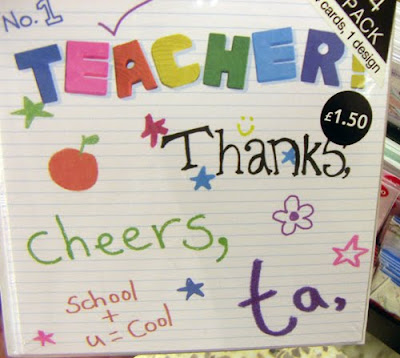 No.1
TEACHER!
4
PACK
cards, 1 design
£1.50
Thanks,
cheers,
School
+
u = Cool
ta,